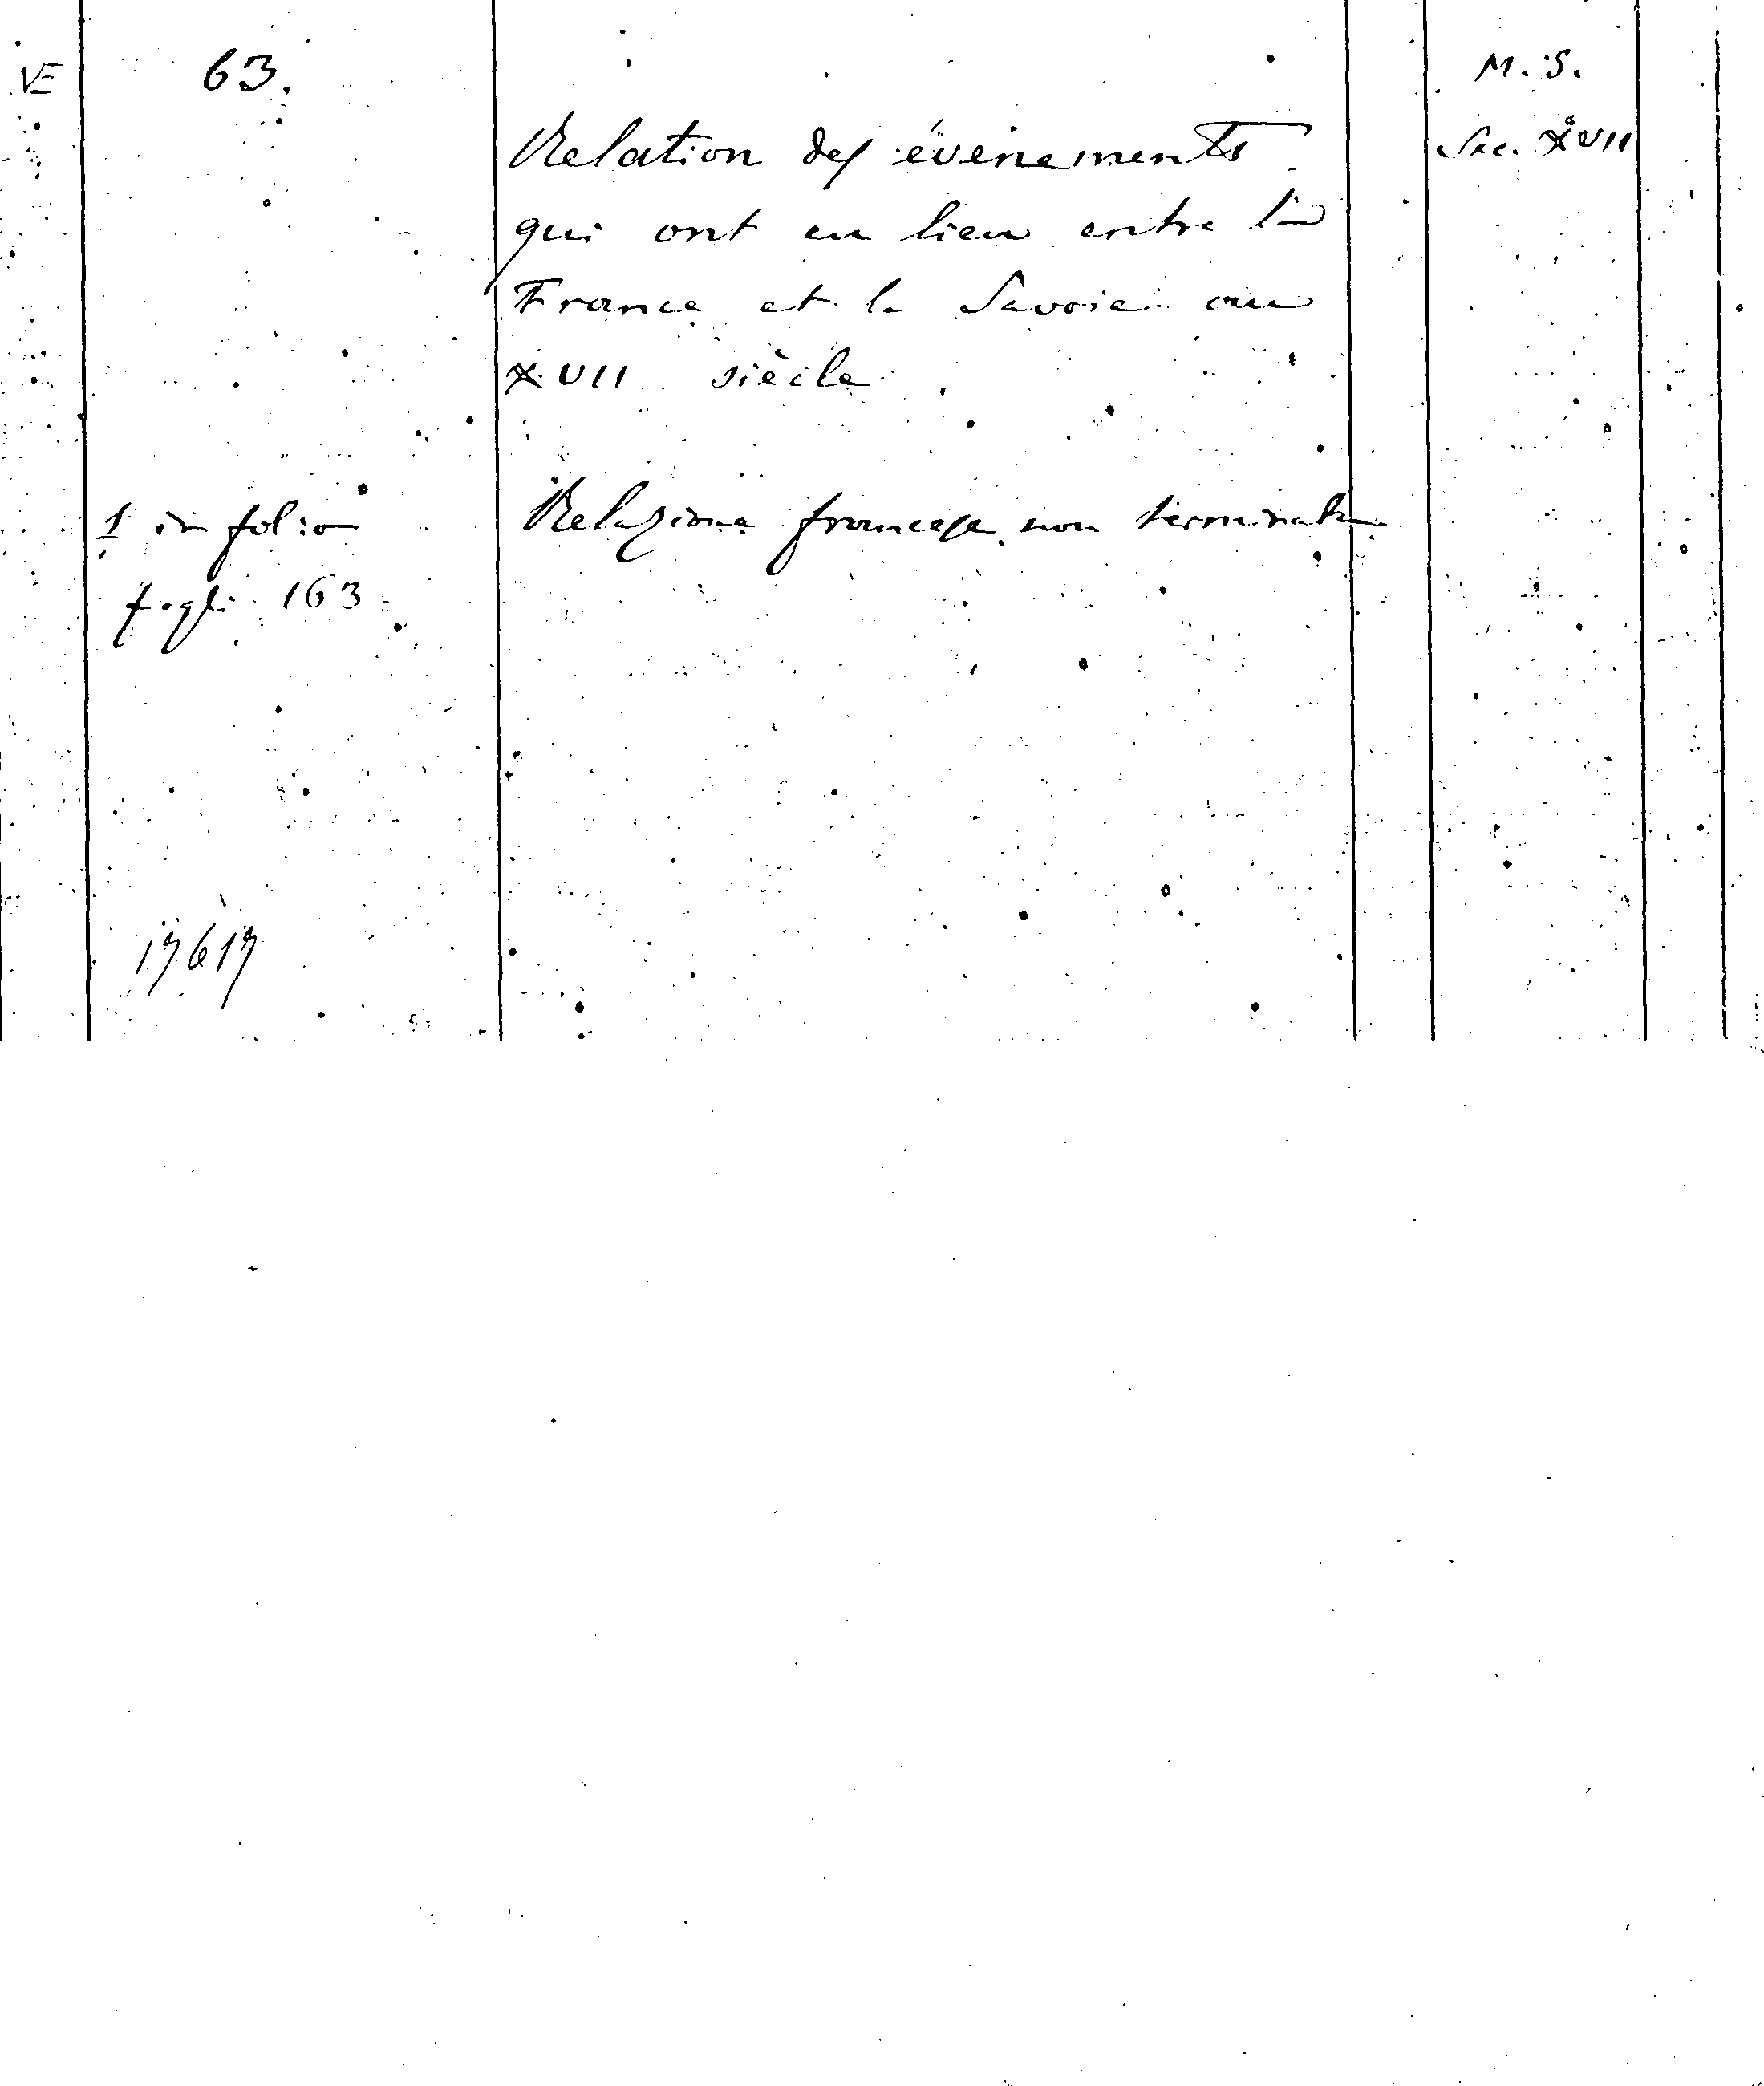 VE
63.
M. S.
Relation des événements
Sec. XVII
qui ont eu lieu entre la
France et la Savoie au
XVII siècle
1 in folio
Relazione francese non terminata
fogli 163
17617